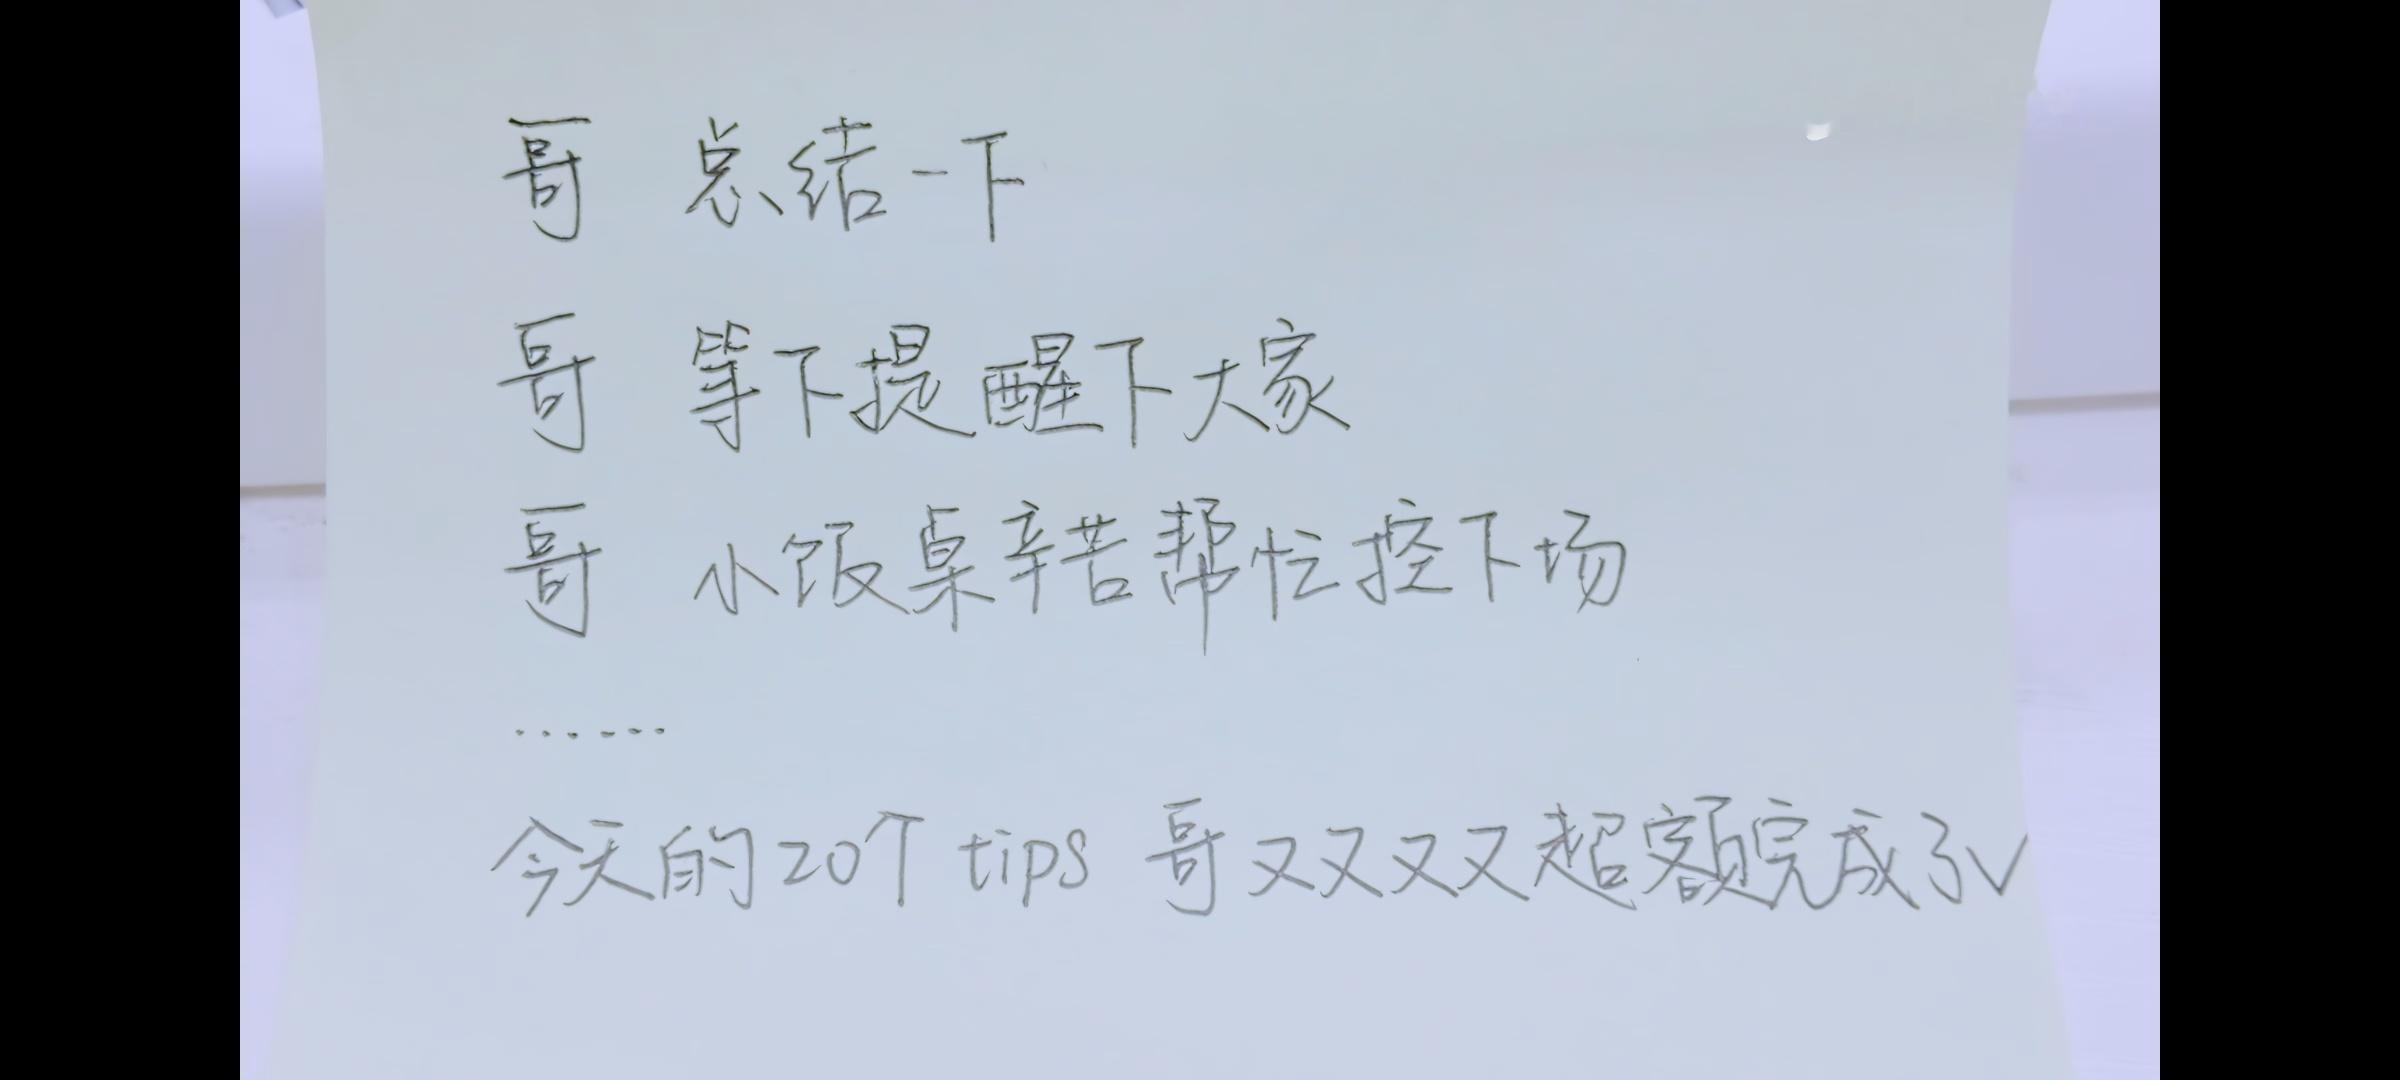 哥 总结一下
哥 等下提醒下大家
哥 小饭桌辛苦帮忙控下场
……
今天的20个 tips 哥又又又又超额完成了√